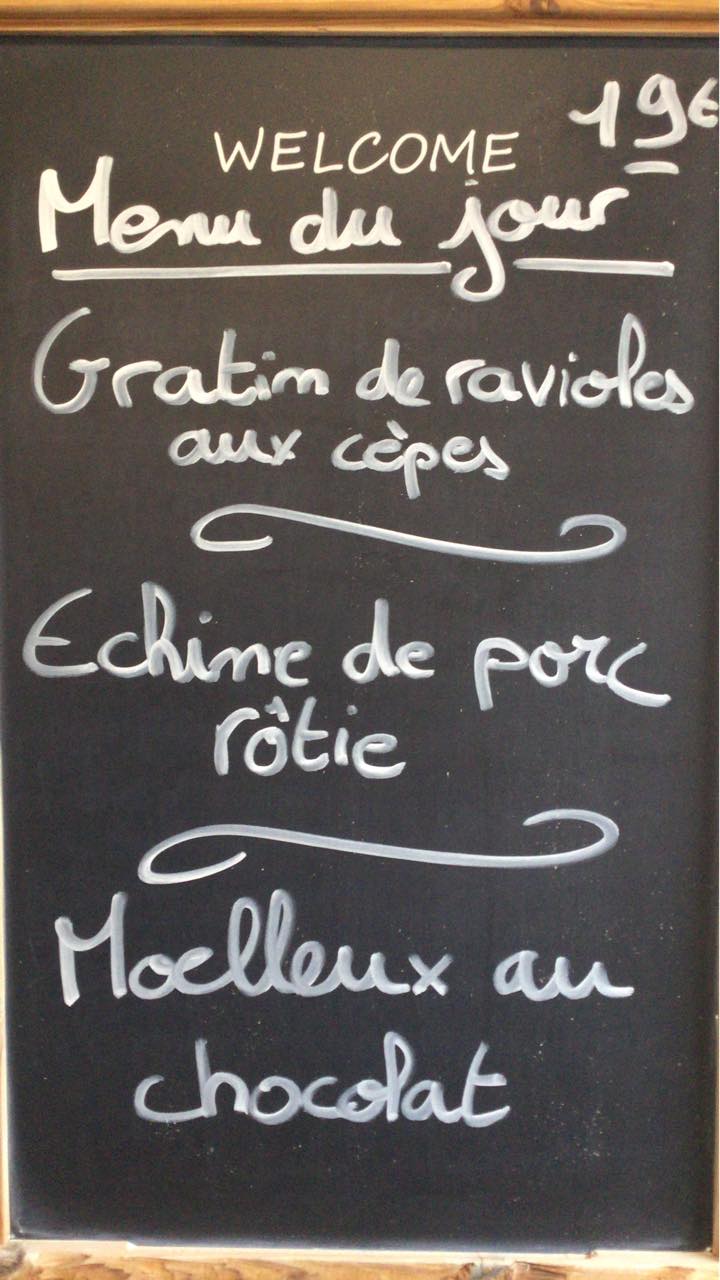 19€
WELCOME
Menu du jour
Gratin de ravioles
aux cèpes
Echine de porc
rôtie
Moelleux au
chocolat